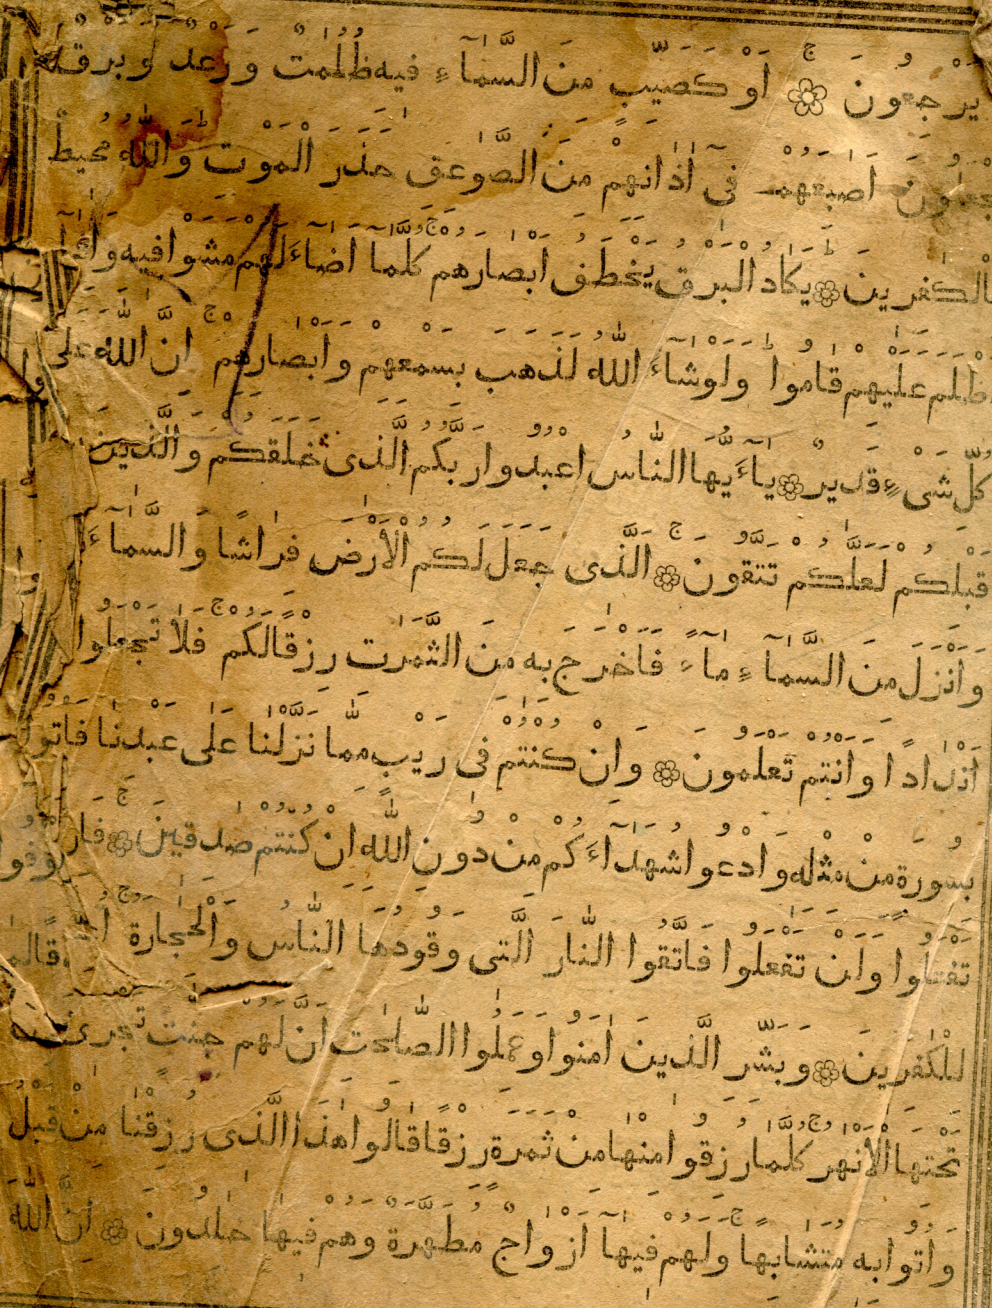 يَرْجِعُونَ ۚ ۝ اَوْ كَصَيِّبٍ مِنَ السَّمَآءِ فِيهِ ظُلُمٰتٌ وَرَعْدٌ وَبَرْقٌ
يَجْعَلُونَ اَصَابِعَهُمْ فِىٓ اٰذَانِهِمْ مِنَ الصَّوٰعِقِ حَذَرَ الْمَوْتِ ۜ وَاللّٰهُ مُحِيطٌ
بِالْكٰفِرِينَ ۝ يَكَادُ الْبَرْقُ يَخْطَفُ اَبْصَارَهُمْ ۜ كُلَّمَآ اَضَآءَ لَهُمْ مَشَوْا فِيهِ ۙ وَاِذَآ
اَظْلَمَ عَلَيْهِمْ قَامُوا ۜ وَلَوْ شَآءَ اللّٰهُ لَذَهَبَ بِسَمْعِهِمْ وَاَبْصَارِهِمْ ۚ اِنَّ اللّٰهَ عَلٰى
كُلِّ شَىْءٍ قَدِيرٌ ۝ يَآءَيُّهَا النَّاسُ اعْبُدُوا رَبَّكُمُ الَّذِى خَلَقَكُمْ وَالَّذِينَ مِنْ
قَبْلِكُمْ لَعَلَّكُمْ تَتَّقُونَ ۚ ۝ اَلَّذِى جَعَلَ لَكُمُ الْاَرْضَ فِرَاشًا وَالسَّمَآءَ
وَاَنْزَلَ مِنَ السَّمَآءِ مَآءً فَاَخْرَجَ بِهِ مِنَ الثَّمَرٰتِ رِزْقًا لَكُمْ ۚ فَلَا تَجْعَلُوا
اَنْدَادًا وَاَنْتُمْ تَعْلَمُونَ ۝ وَاِنْ كُنْتُمْ فِى رَيْبٍ مِمَّا نَزَّلْنَا عَلٰى عَبْدِنَا فَاْتُوا
بِسُورَةٍ مِنْ مِثْلِهِ وَادْعُوا شُهَدَآءَكُمْ مِنْ دُونِ اللّٰهِ اِنْ كُنْتُمْ صٰدِقِينَ ۚ ۝ فَاِنْ
تَفْعَلُوا وَلَنْ تَفْعَلُوا فَاتَّقُوا النَّارَ الَّتِى وَقُودُهَا النَّاسُ وَالْحِجَارَةُ ۚ
لِلْكٰفِرِينَ ۝ وَبَشِّرِ الَّذِينَ اٰمَنُوا وَعَمِلُوا الصّٰلِحٰتِ اَنَّ لَهُمْ جَنّٰتٍ تَجْرِى مِنْ
تَحْتِهَا الْاَنْهٰرُ ۜ كُلَّمَا رُزِقُوا مِنْهَا مِنْ ثَمَرَةٍ رِزْقًا قَالُوا هٰذَا الَّذِى رُزِقْنَا مِنْ قَبْلُ
وَاُتُوا بِهِ مُتَشَابِهًا ۚ وَلَهُمْ فِيهَآ اَزْوَاجٌ مُطَهَّرَةٌ وَهُمْ فِيهَا خٰلِدُونَ ۝ اِنَّ اللّٰهَ